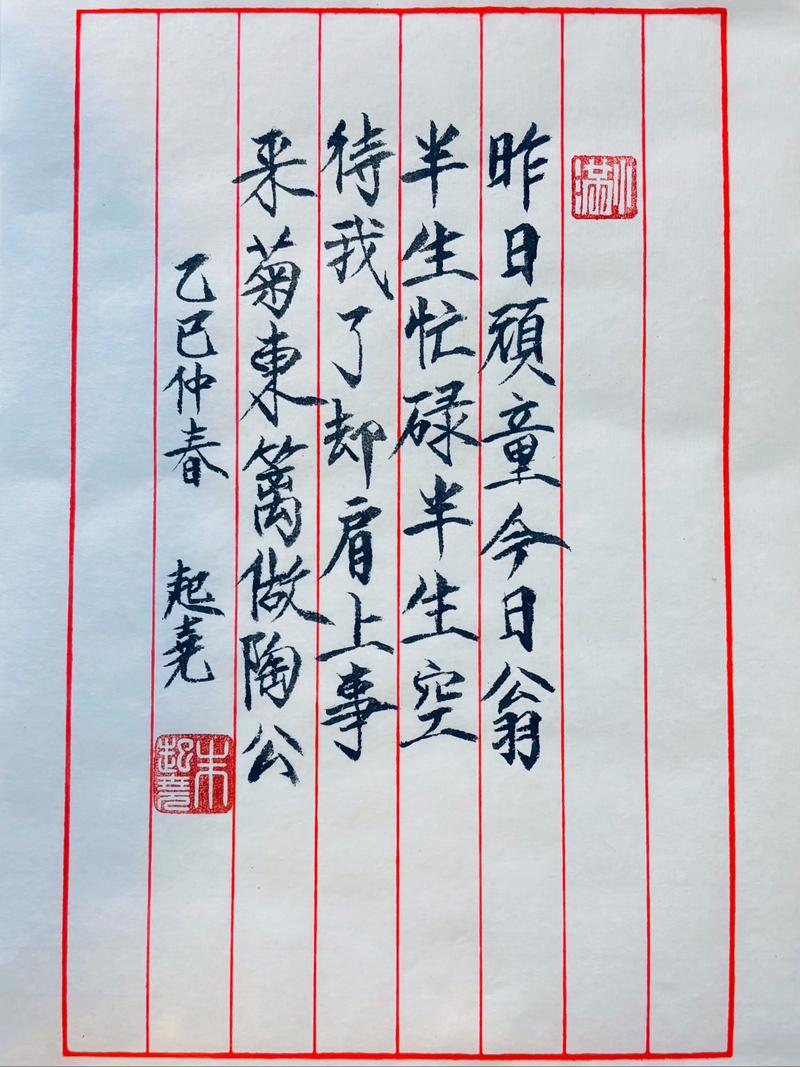 昨日頑童今日翁
半生忙碌半生空
待我了却肩上事
采菊東篱做陶公
乙巳仲春 起堯
朱起堯